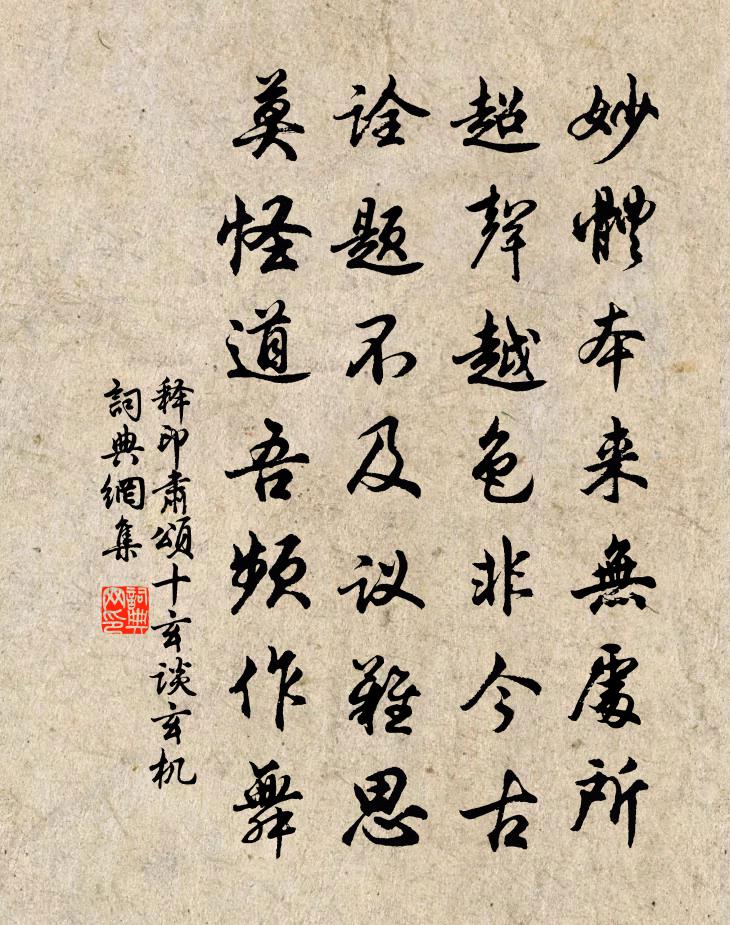 妙體本来無處所
超聲越色非今古
詮题不及议難思
莫怪道吾频作舞
释印肃頌十玄谈玄机
詞典網集
詞典网印